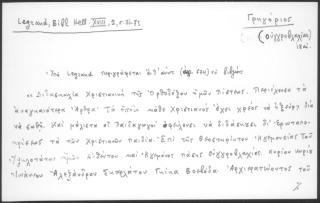 Legrand, Bibl. Hell. XVIII, 2, σ. 31-32
Γρηγόριος
(Οὑγγροβλαχίας)
Ὑπὸ Legrand περιγράφεται ἐπ' αὐτ (ἀρ.) τὸ βιβλίον
« Διδασκαλία Χριστιανικὴ τῆς Ὀρθοδόξου ἡμῶν Πίστεως. Περιέχουσα τὰ
ἀναγκαιότερα Ἄρθρα. Τὰ ὁποῖα κάθε Χριστιανὸς ἔχει χρέος νὰ ἠξεύρῃ διὰ
νὰ σωθῇ. Καὶ μάλιστα οἱ Παιδαγωγοὶ ὀφείλουσι νὰ διδάσκωσι δι' Ἐρωταπο-
κρίσεως τὰ τῶν Χριστιανῶν Παιδιά. Ἐπὶ τῆς Θεοστηρίκτου Ἡγεμονείας Τοῦ
Ὑψηλοτάτου ἡμῶν Αὐθέντου καὶ Ἡγεμόνος πάσης Οὑγγροβλαχίας. Κυρίου Κυρίου
Ἰωάννου Ἀλεξάνδρου Σκαρλάτου Γκίκα Βοεβόδα. Ἀρχιερατεύοντος τοῦ